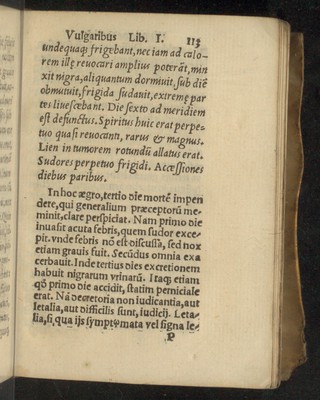 Vulgaribus Lib. I. 113
undequaq; frigebant, nec iam ad calo-
rem illę reuocari amplius poterāt, min
xit nigra, aliquantum dormiuit, sub diē
obmutuit, frigida sudauit, extremę par
tes liuescebant. Die sexto ad meridiem
est defunctus. Spiritus huic erat perpe-
tuo quasi reuocanti, rarus & magnus.
Lien in tumorem rotundū allatus erat.
Sudores perpetuo frigidi. Accessiones
diebus paribus.
In hoc ægro, tertio diē mortē impen
dete, qui generalium præceptorū me-
minit, clare perspiciat. Nam primo die
inuasit acuta febris, quem sudor exce-
pit. vnde febris nō est discussa, sed nox
etiam grauis fuit. Secūdus omnia exa
cerbauit. Inde tertius dies excretionem
habuit nigrarum vrinarū. Itaq; etiam
qḋ primo die accidit, statim perniciale
erat. Nā decretoria non iudicantia, aut
letalia, aut difficilis sunt, iudicij. Leta-
lia, si qua ijs symptomata vel signa le-
P